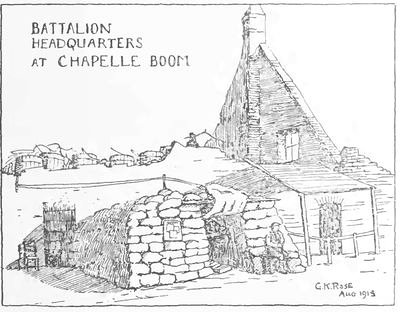 BATTALION
HEADQUARTERS
AT CHAPELLE BOOM
G.K.ROSE
AUG 1918